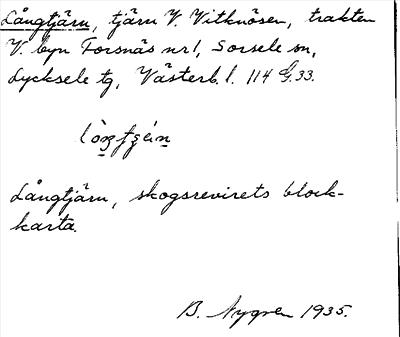 Långtjärn, tjärn V. Vitknösen, trakten
V. byn Forsnäs nr 1, Sorsele sn,
Lycksele tg, Västerb. l. 114 G. 33.
Långtjärn, skogsrevirets block-
karta.
B. Nygren 1935.